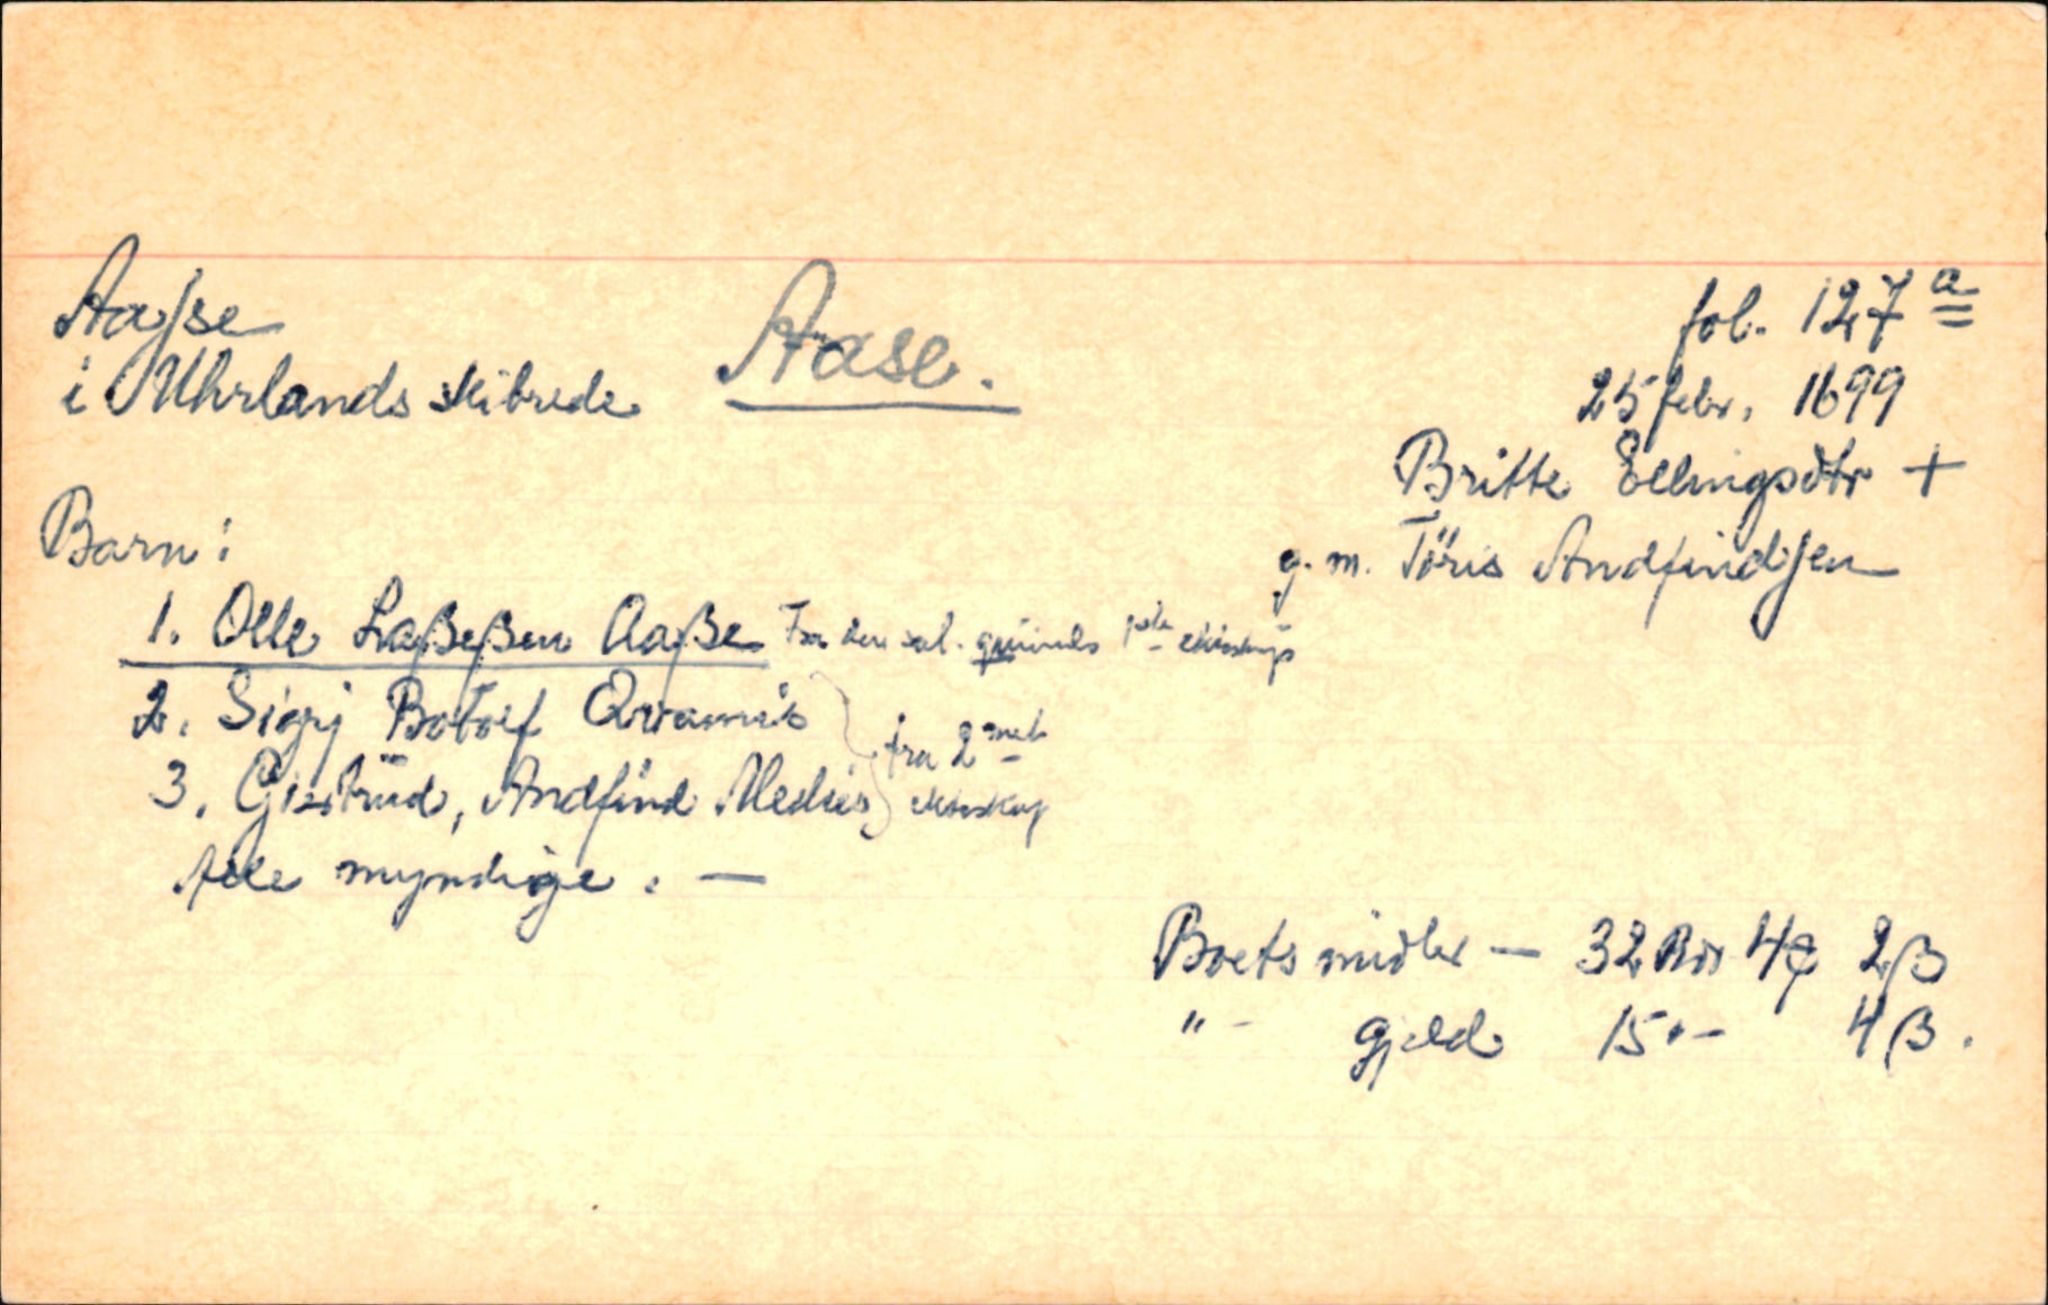 Aaſse
i Uhrlands skibrede
Aase.
fol. 127 a
25 febr. 1699
Britte Ellingsdtr +
g. m. Töris Andfindſen
Barn:
1. Olle Laßeßen Aaße Fra den sal. qwindes 1ste ekteskap
2. Sigrj Botolf Qvammis
3. Giertrüd, Andfind Melües
fra 2 net
ekteskap
Alle myndige. —
Boets midler — 32 Rdr 4 2 ß
" - gjeld 15 " - 4 ß.